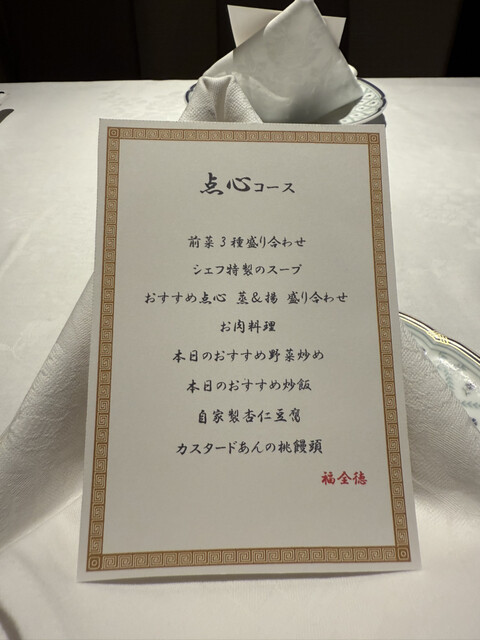 点心コース
前菜3種盛り合わせ
シェフ特製のスープ
おすすめ点心 蒸&揚 盛り合わせ
お肉料理
本日のおすすめ野菜炒め
本日のおすすめ炒飯
自家製杏仁豆腐
カスタードあんの桃饅頭
福全徳